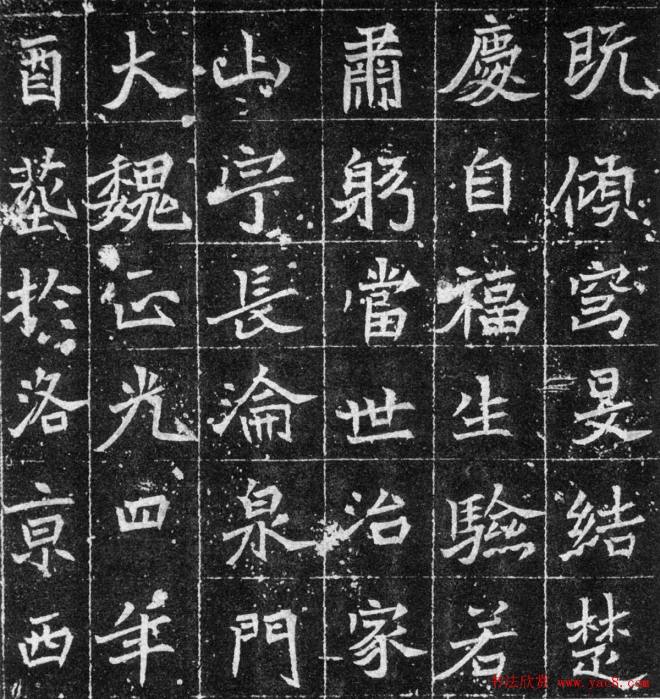 既傾穹旻結楚
慶自福生驗若
肅躬當世治家
山宁長淪泉門
大魏正光四年
酉塟於洛亰西
书法欣赏 www.yac8.com